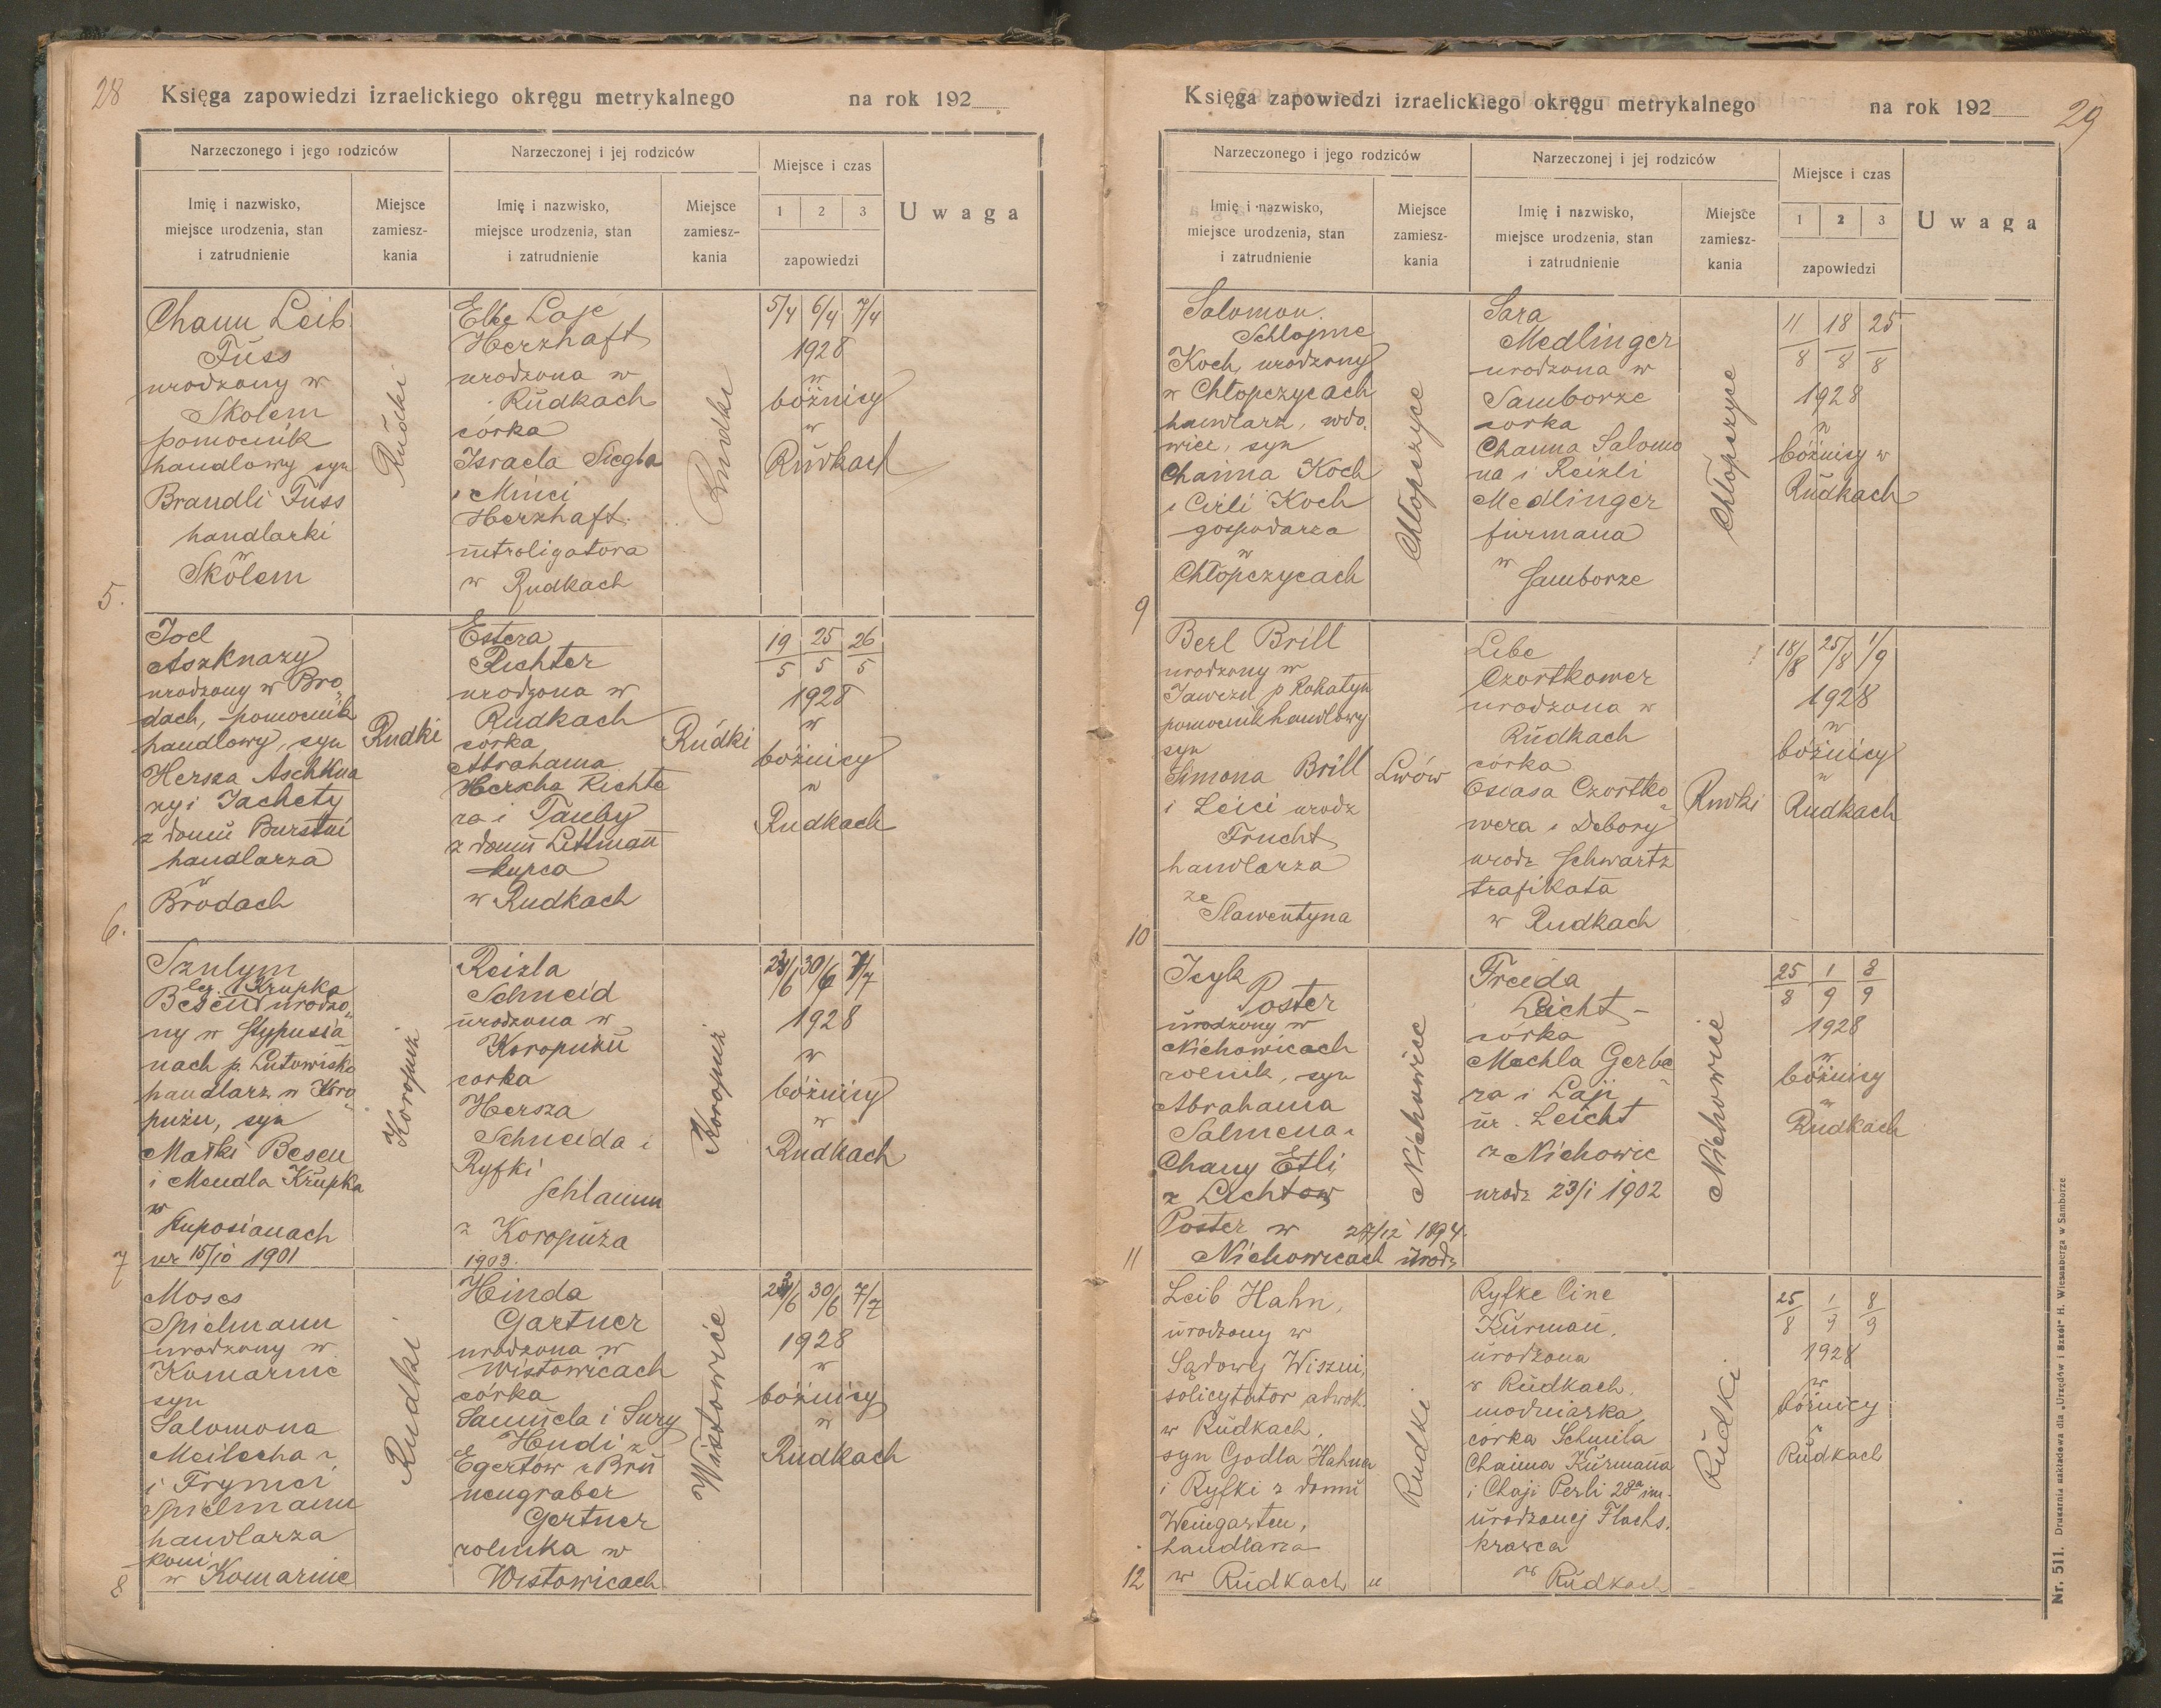 28
Księga zapowiedzi izraelickiego okręgu metrykalnego na rok 192
Narzeczonego i jego rodziców
Narzeczonej i jej rodziców
Miejsce i czas
Uwaga
Imię i nazwisko,
miejsce urodzenia, stan
i zatrudnienie
Miejsce
zamiesz-
kania
Imię i nazwisko,
miejsce urodzenia, stan
i zatrudnienie
Miejsce
zamiesz-
kania
1 2 3
zapowiedzi
5.
Chaim Leib
Fuss
urodzony w
Skolem
pomocnik
handlowy syn
Brandli Fuss
handlarki
w
Skolem
Rudki
Elke Laje
Herzhaft
urodzona w
Rudkach
córka
Israela Siegla
i Minci
Herzhaft
introligatora
w Rudkach
Rudki
5/4 6/4 7/4
1928
w
bóżnicy
w
Rudkach
6.
Joel
Aszknazy
urodzony w Bro
dach, pomocnik
handlowy, syn
Hersza Aschkna
zy i Jachety
z domu Burstin
handlarza
w
Brodach
Rudki
Estera
Richter
urodzona w
Rudkach
córka
Abrahama
Herscha Richte
ra i Tauby
z domu Littman
kupca
w Rudkach
Rudki
19/5 25/5 26/5
1928
w
bóżnicy
w
Rudkach
7
Szulym
leg. Krupka
Besen urodzo
ny w Stuposia
nach p. Lutowisko
handlarz w Koro
pużu, syn
Matki Besen
i Mendla Krupka
w
Stuposianach
ur 15/10 1901
Koropuż
Reizla
Schneid
urodzona w
Koropużu
córka
Hersza
Schneida i
Ryfki
Schlamm
z Koropuża
1903.
Koropuż
23/6 30/6 7/7
1928
w
bóżnicy
w
Rudkach
8
Moses
Spielmann
urodzony w
Komarnie
syn
Salomona
Meilecha
i Frymci
Spielmann
handlarza
koni
w Komarnie
Rudki
Hinda
Gartner
urodzona w
Wistowicach
córka
Samuela i Sury
Hendi z
Egertów
neugraber
Gertner
rolnika w
Wistowicach
Wistowice
23/6 30/6 7/7
1928
w
bóżnicy
w
Rudkach
29
Księga zapowiedzi izraelickiego okręgu metrykalnego na rok 192
Narzeczonego i jego rodziców
Narzeczonej i jej rodziców
Miejsce i czas
Uwaga
Imię i nazwisko,
miejsce urodzenia, stan
i zatrudnienie
Miejsce
zamiesz-
kania
Imię i nazwisko,
miejsce urodzenia, stan
i zatrudnienie
Miejsce
zamiesz-
kania
1 2 3
zapowiedzi
9
Salomon
Schlojme
Koch, urodzony
w Chłopczycach
handlarz, wdo
wiec, syn
Chaima Koch
i Cirli Koch
gospodarza
w
Chłopczycach
Chłopczyce
Sara
Medlinger
urodzona w
Samborze
córka
Chaima Salomo
na i Reizli
Medlinger
furmana
w
Samborze
Chłopczyce
11/8 18/8 25/8
1928
w
bóżnicy w
Rudkach
10
Berl Brill
urodzony w
Jawczu p Rohatyn
pomocnik handlowy
syn
Simona Brill
i Leici urodz
Frucht
handlarza
ze
Sławentyna
Lwów
Libe
Czortkower
urodzona w
Rudkach
córka
Osiasa Czortko
wera i Debory
urodz Schwartz
trafikata
w Rudkach
Rudki
18/8 25/8 1/9
1928
w
bóżnicy
w
Rudkach
11
Icyk
Poster
urodzony w
Nichowicach
rolnik, syn
Abrahama
Salmena
Chany Etli
z Lichtow
Poster w 27/12 1894
Nichowicach urodz
Nichowice
Freida
Leicht
córka
Mechla Gerbe
ra i Laji
ur. Leicht
z Nichowic
urodz 23/1 1902
Nichowice
25/8 1/9 8/9
1928
w
bóżnicy
w
Rudkach
12
Leib Hahn,
urodzony w
Sądowej Wiszni,
solicytator adwok.
w Rudkach,
syn Godla Hahna
i Ryfki z domu
Weingarten,
handlarza
w Rudkach
Rudki
Ryfke Cine
Kurman,
urodzona
w Rudkach,
modniarka,
córka Schmila
Chaima Kurmana
i Chaji Perli 2ga im.
urodzonej Flachs,
krawca
w Rudkach
Rudki
25/8 1/9 8/9
1928
w
bóżnicy
w
Rudkach
Nr. 511. Drukarnia nakładowa dla „Urzędów i Szkół" H. Wiesenberga w Samborze